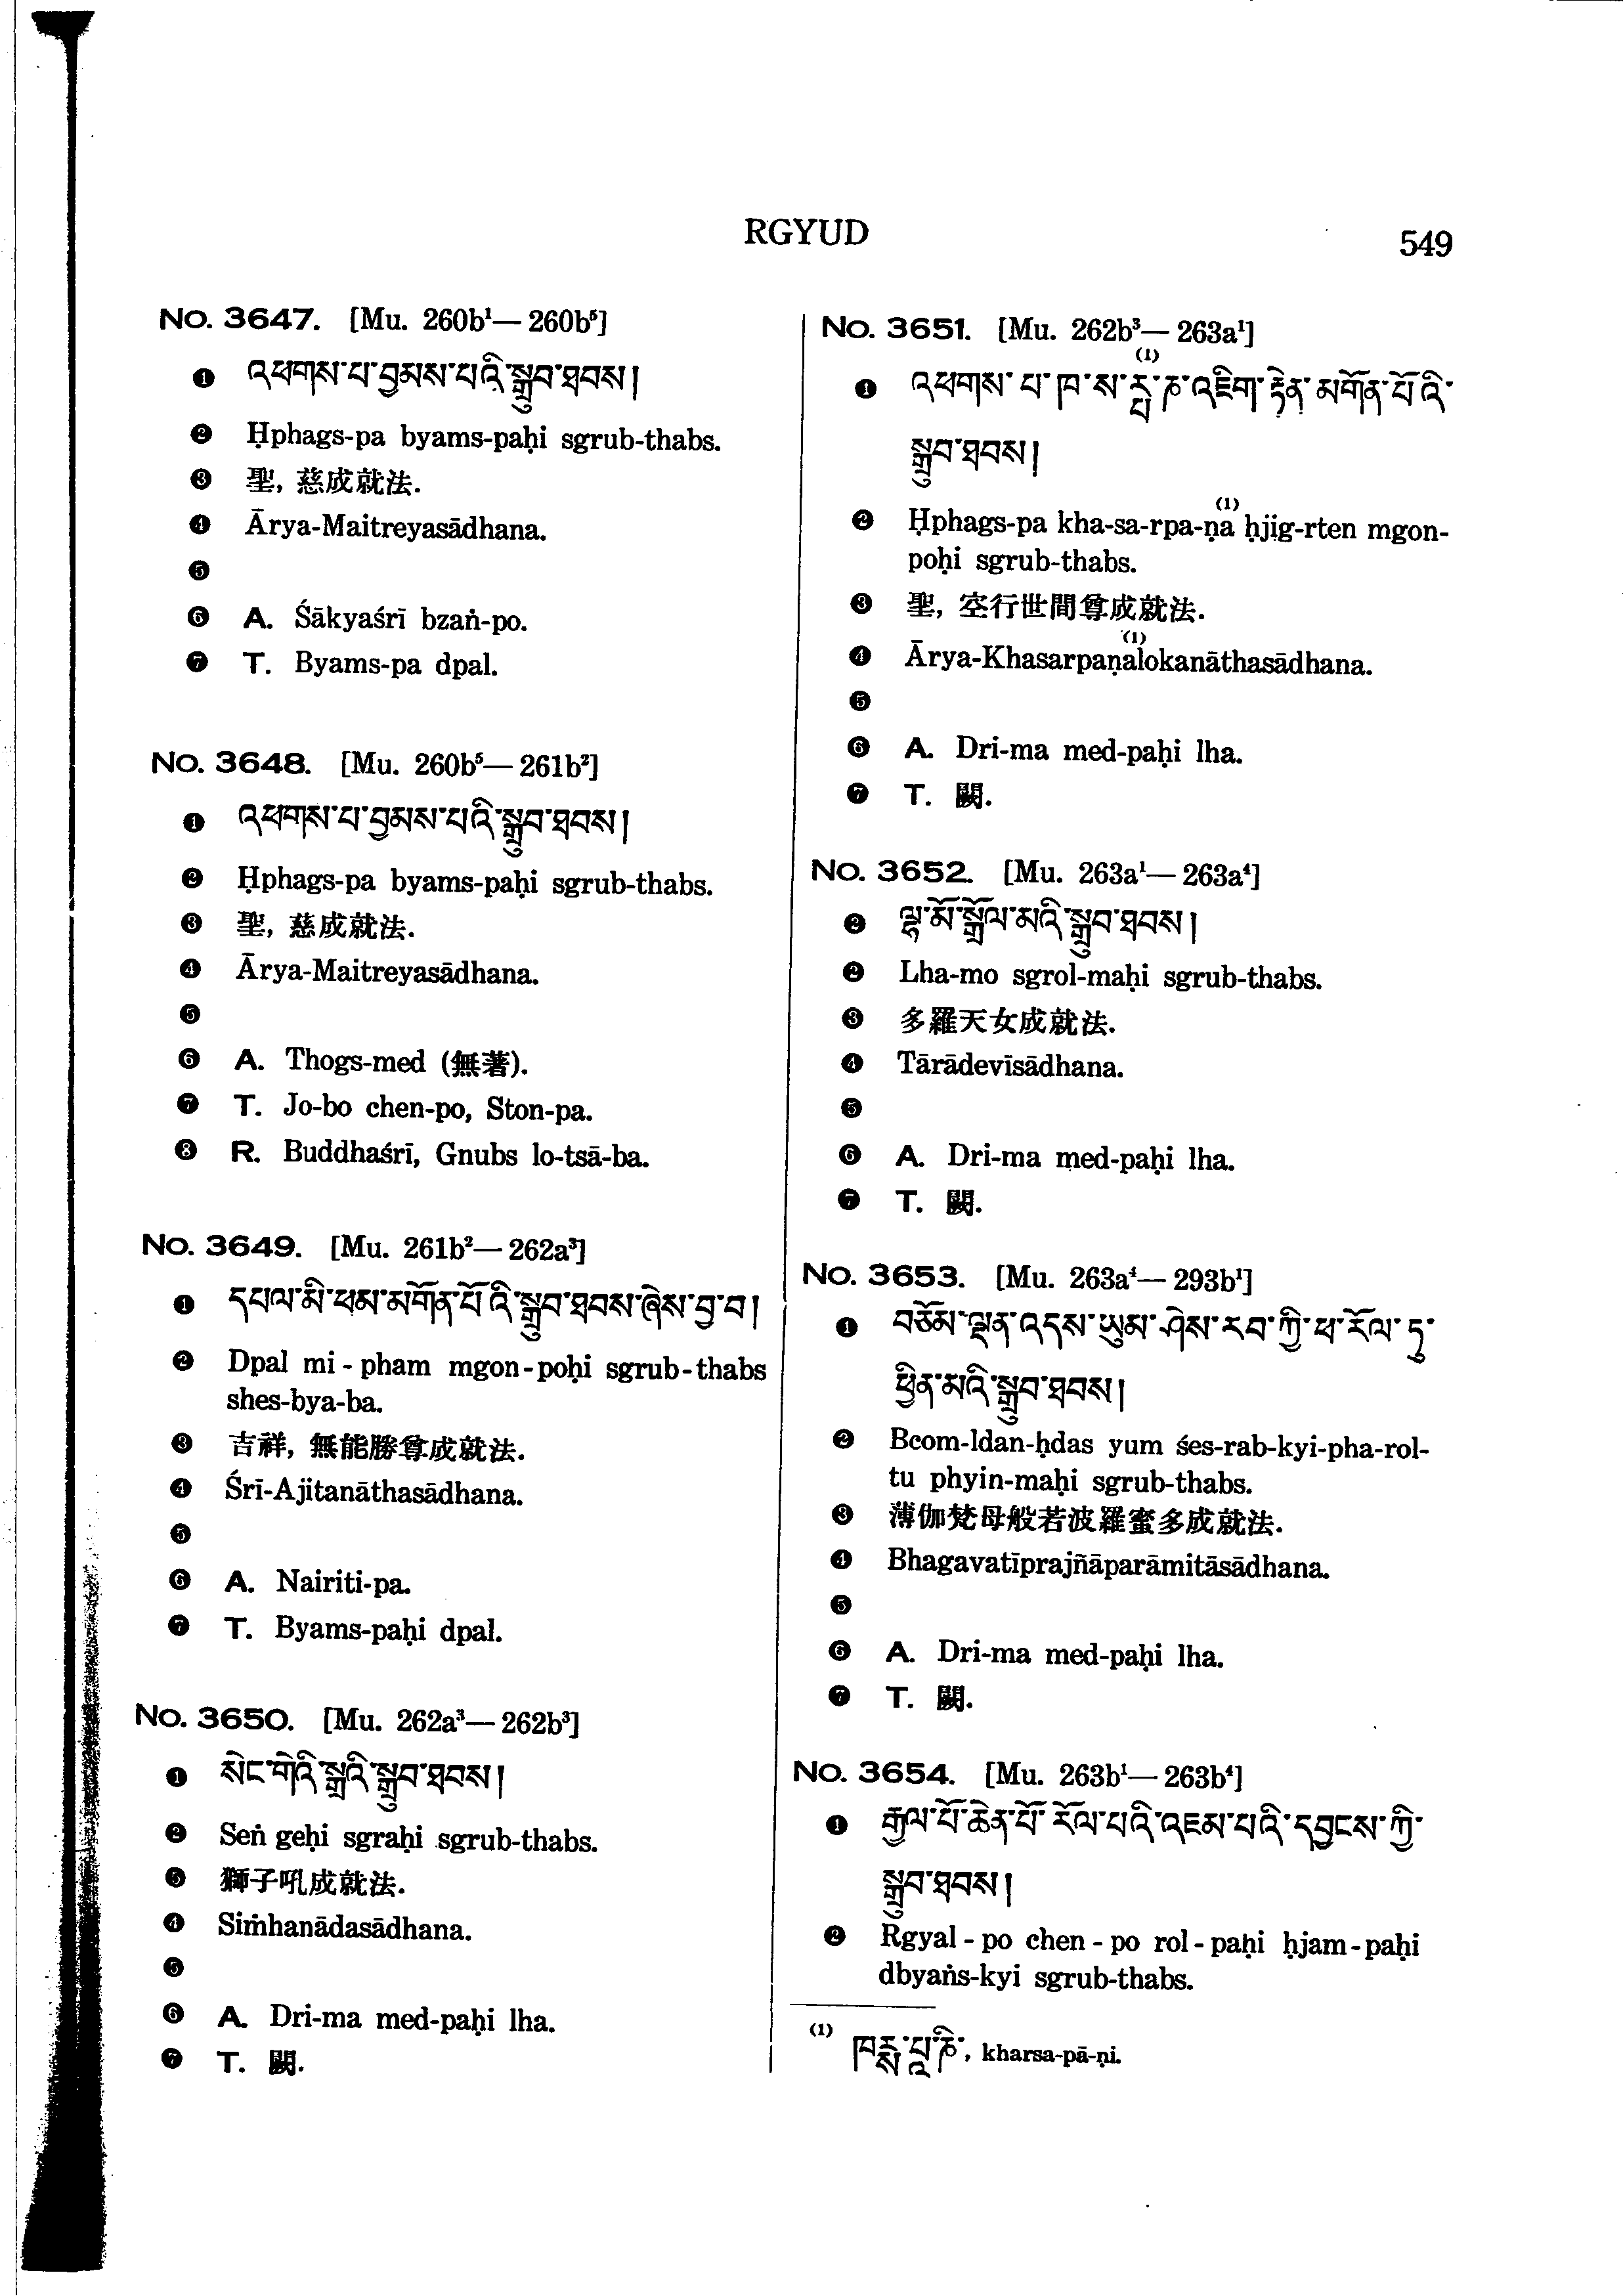 RGYUD
549
No. 3647. [Mu. 260b¹—260b⁵]
❶ འཕགས་པ་བྱམས་པའི་སྒྲུབ་ཐབས།
❷ Ḥphags-pa byams-paḥi sgrub-thabs.
❸ 聖, 慈成就法.
❹ Ārya-Maitreyasādhana.
❺
❻ A. Śākyaśrī bzaṅ-po.
❼ T. Byams-pa dpal.
No. 3648. [Mu. 260b⁵—261b²]
❶ འཕགས་པ་བྱམས་པའི་སྒྲུབ་ཐབས།
❷ Ḥphags-pa byams-paḥi sgrub-thabs.
❸ 聖, 慈成就法.
❹ Ārya-Maitreyasādhana.
❺
❻ A. Thogs-med (無著).
❼ T. Jo-bo chen-po, Ston-pa.
❽ R. Buddhaśrī, Gnubs lo-tsā-ba.
No. 3649. [Mu. 261b²—262a³]
❶ དཔལ་མི་ཕམ་མགོན་པོའི་སྒྲུབ་ཐབས་ཞེས་བྱ་བ།
❷ Dpal mi-pham mgon-poḥi sgrub-thabs
shes-bya-ba.
❸ 吉祥, 無能勝尊成就法.
❹ Śrī-Ajitanāthasādhana.
❺
❻ A. Nairiti-pa.
❼ T. Byams-paḥi dpal.
No. 3650. [Mu. 262a³—262b³]
❶ སེང་གེའི་སྒྲའི་སྒྲུབ་ཐབས།
❷ Seṅ geḥi sgraḥi sgrub-thabs.
❺ 獅子吼成就法.
❹ Siṁhanādasādhana.
❺
❻ A. Dri-ma med-paḥi lha.
❼ T. 闕.
No. 3651. [Mu. 262b³—263a¹]
❶ འཕགས་པ་ཁ་ས་རྤ་ཎ་(1)འཇིག་རྟེན་མགོན་པོའི་
སྒྲུབ་ཐབས།
❷ Ḥphags-pa kha-sa-rpa-ṇa(1) ḥjig-rten mgon-
poḥi sgrub-thabs.
❸ 聖, 空行世間尊成就法.
❹ Ārya-Khasarpaṇa(1)lokanāthasādhana.
❺
❻ A. Dri-ma med-paḥi lha.
❼ T. 闕.
No. 3652. [Mu. 263a¹—263a⁴]
❷ ལྷ་མོ་སྒྲོལ་མའི་སྒྲུབ་ཐབས།
❷ Lha-mo sgrol-maḥi sgrub-thabs.
❸ 多羅天女成就法.
❹ Tārādevīsādhana.
❺
❻ A. Dri-ma med-paḥi lha.
❼ T. 闕.
No. 3653. [Mu. 263a⁴—293b¹]
❶ བཅོམ་ལྡན་འདས་ཡུམ་ཤེས་རབ་ཀྱི་ཕ་རོལ་ཏུ་
ཕྱིན་མའི་སྒྲུབ་ཐབས།
❷ Bcom-ldan-ḥdas yum śes-rab-kyi-pha-rol-
tu phyin-maḥi sgrub-thabs.
❸ 薄伽梵母般若波羅蜜多成就法.
❹ Bhagavatīprajñāpāramitāsādhana.
❺
❻ A. Dri-ma med-paḥi lha.
❼ T. 闕.
No. 3654. [Mu. 263b¹—263b⁴]
❶ རྒྱལ་པོ་ཆེན་པོ་རོལ་པའི་འཇམ་པའི་དབྱངས་ཀྱི་
སྒྲུབ་ཐབས།
❷ Rgyal-po chen-po rol-paḥi ḥjam-paḥi
dbyaṅs-kyi sgrub-thabs.
(1) ཁརྶ་པཱ་ཎི་, kharsa-pā-ṇi.